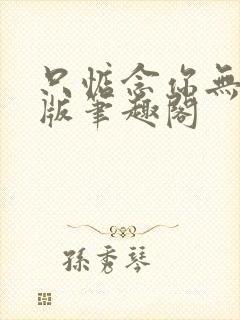 只惦念你無
版筆趣閣
孫秀琴